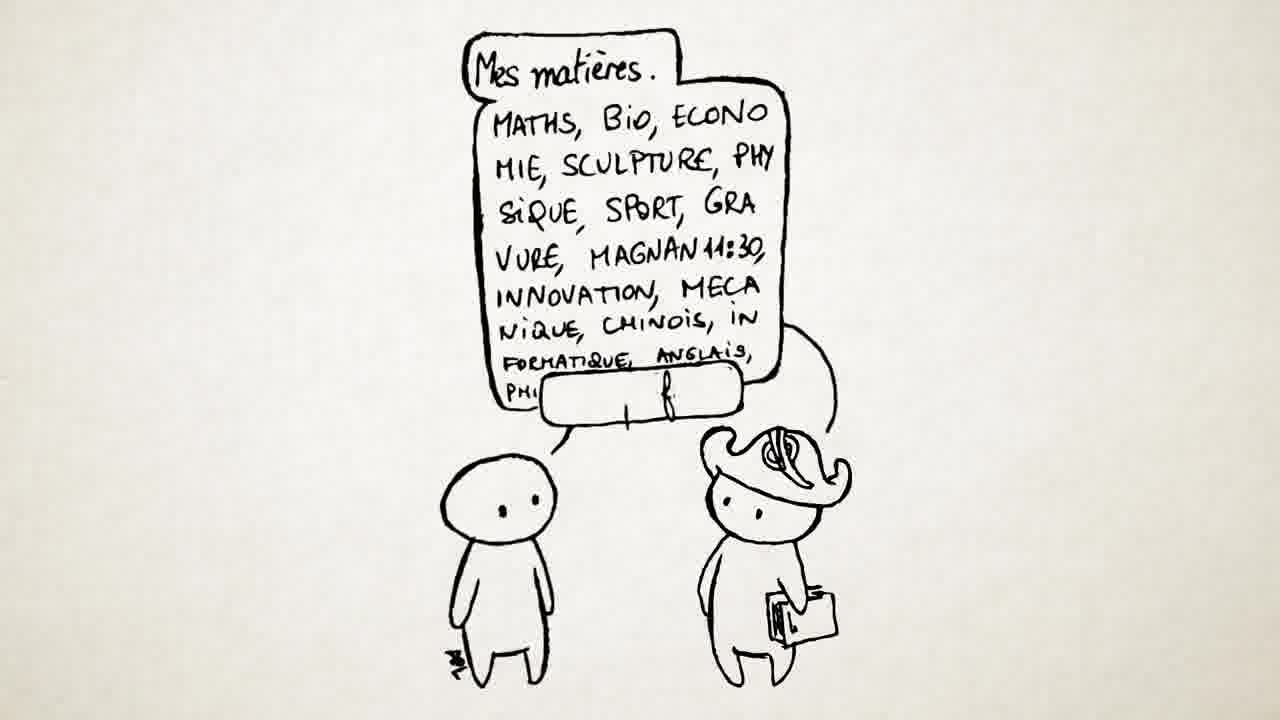 Mes matières.
MATHS, BiO, ECONO
MIE, SCULPTURE, PHY
SiQUE, SPORT, GRA
VURE, MAGNAN 11:30,
INNOVATION, MECA
NiQUE, CHINOiS, iN
FORMATIQUE, ANGLAIS,